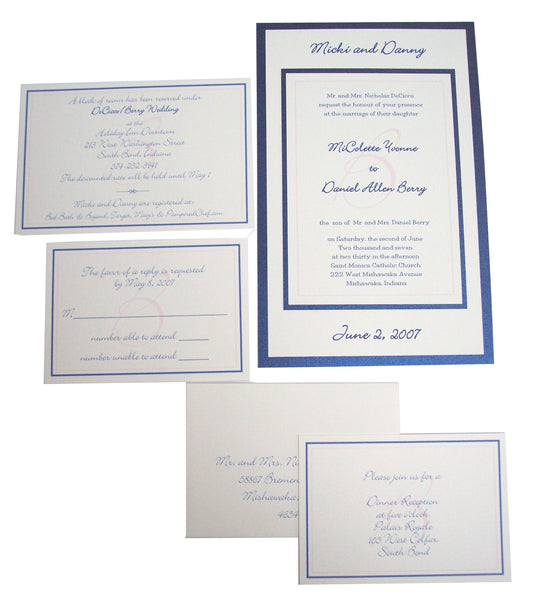 A block of rooms has been reserved under
DeCicco/Berry Wedding
at the
Holiday Inn Downtown
213 West Washington Street
South Bend, Indiana
574-232-3941
The discounted rate will be held until May 1
Micki and Danny are registered at:
Bed Bath & Beyond, Target, Macy's & PamperedChef.com
The favor of a reply is requested
by May 8, 2007
M
number able to attend
number unable to attend
Micki and Danny
Mr. and Mrs. Nicholas DeCicco
request the honour of your presence
at the marriage of their daughter
MiColette Yvonne
to
Daniel Allen Berry
the son of Mr. and Mrs. Daniel Berry
on Saturday, the second of June
Two thousand and seven
at two thirty in the afternoon
Saint Monica Catholic Church
222 West Mishawaka Avenue
Mishawaka, Indiana
June 2, 2007
Mr. and Mrs. Ni
58867 Bremen
Mishawaka,
4654
Please join us for a
Dinner Reception
at five o'clock
Palais Royale
105 West Colfax
South Bend